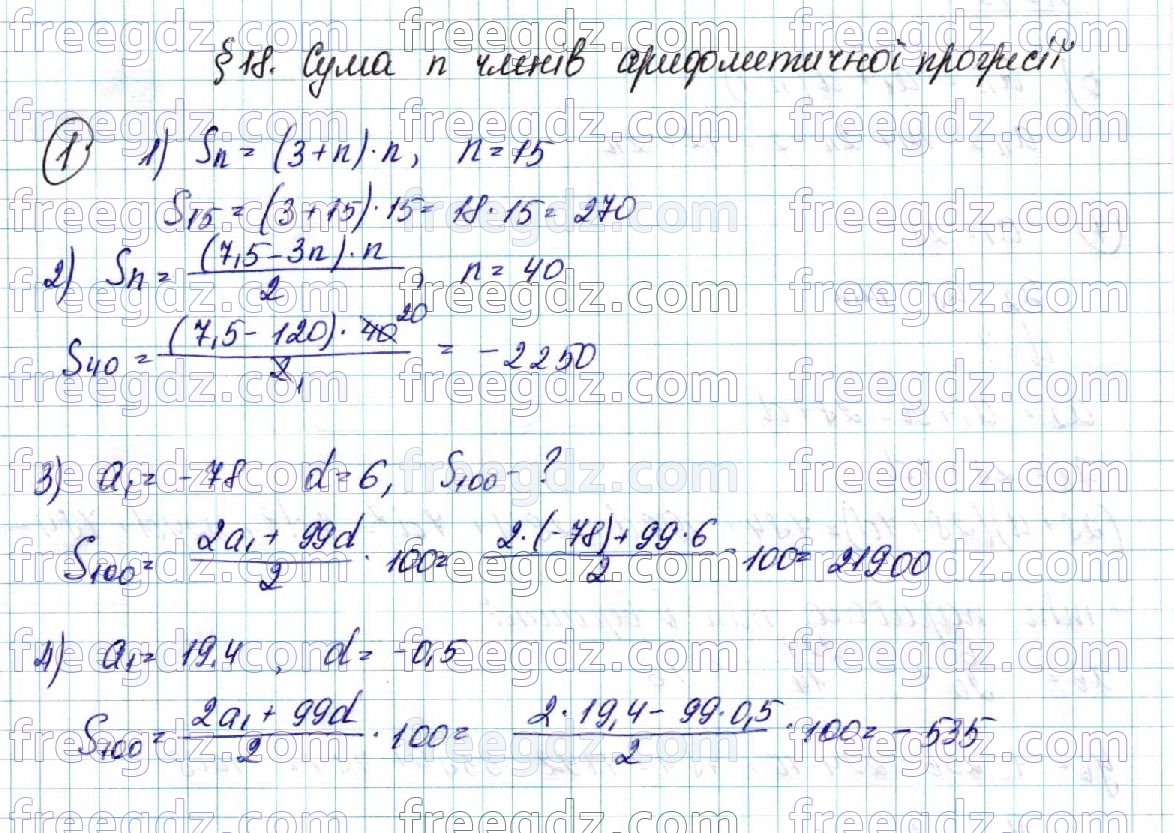 §18. Сума n членів арифметичної прогресії
① 1) Sn = (3+n)·n, n=15
S15 = (3+15)·15 = 18·15 = 270
2) Sn = (7,5-3n)·n / 2, n = 40
S40 = (7,5-120)·40 20 / 2 1 = -2250
3) a1 = -78 d=6, S100 - ?
S100 = 2a1 + 99d / 2 · 100 = 2·(-78)+99·6 / 2 · 100 = 21900
4) a1 = 19,4 , d = -0,5
S100 = 2a1 + 99d / 2 · 100 = 2·19,4 - 99·0,5 / 2 · 100 = -535
freegdz.com